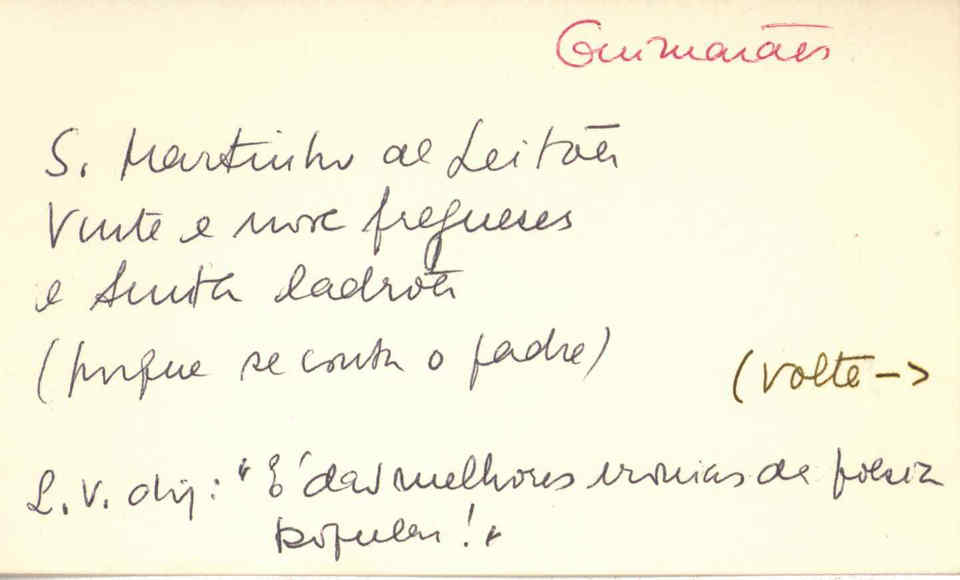 Guimarães
S. Martinho de Leitões
Vinte e nove fregueses
e trinta ladrões
(porque se conta o padre)
(volte ->
L.V. diz: "É das melhores ironias da poesia
popular!"